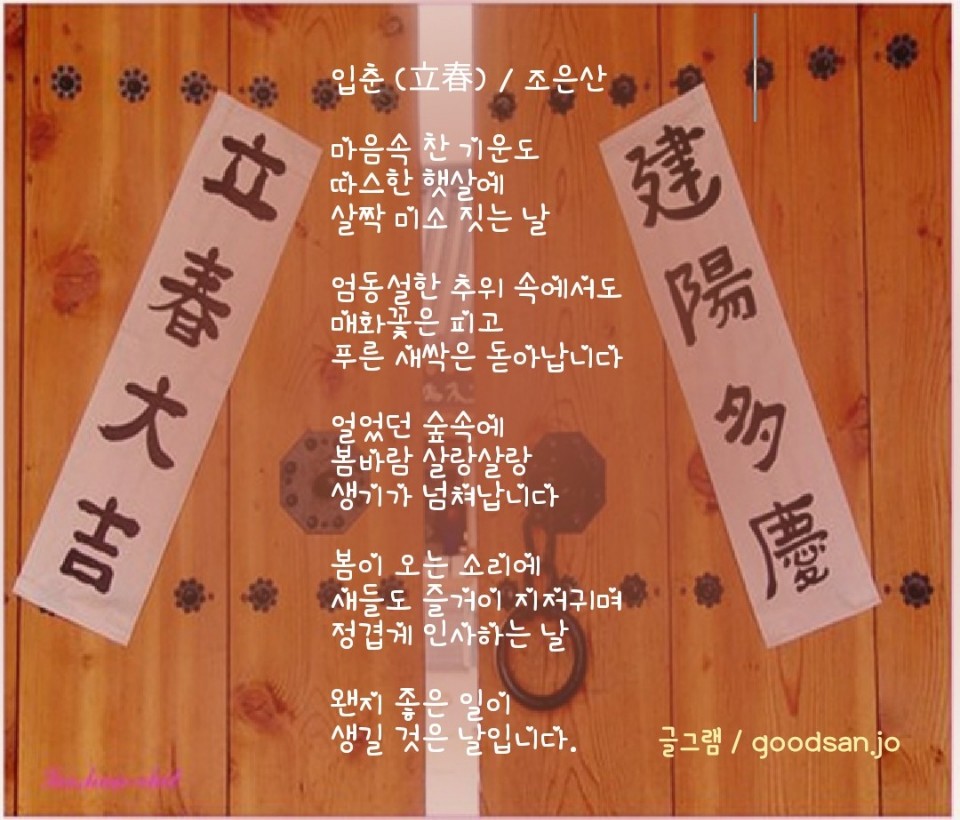 입춘 (立春) / 조은산
마음속 찬 기운도
따스한 햇살에
살짝 미소 짓는 날
엄동설한 추위 속에서도
매화꽃은 피고
푸른 새싹은 돋아납니다
얼었던 숲속에
봄바람 살랑살랑
생기가 넘쳐납니다
봄이 오는 소리에
새들도 즐거이 지저귀며
정겹게 인사하는 날
왠지 좋은 일이
생길 것은 날입니다.
글그램 / goodsan.jo
立春大吉
建陽多慶